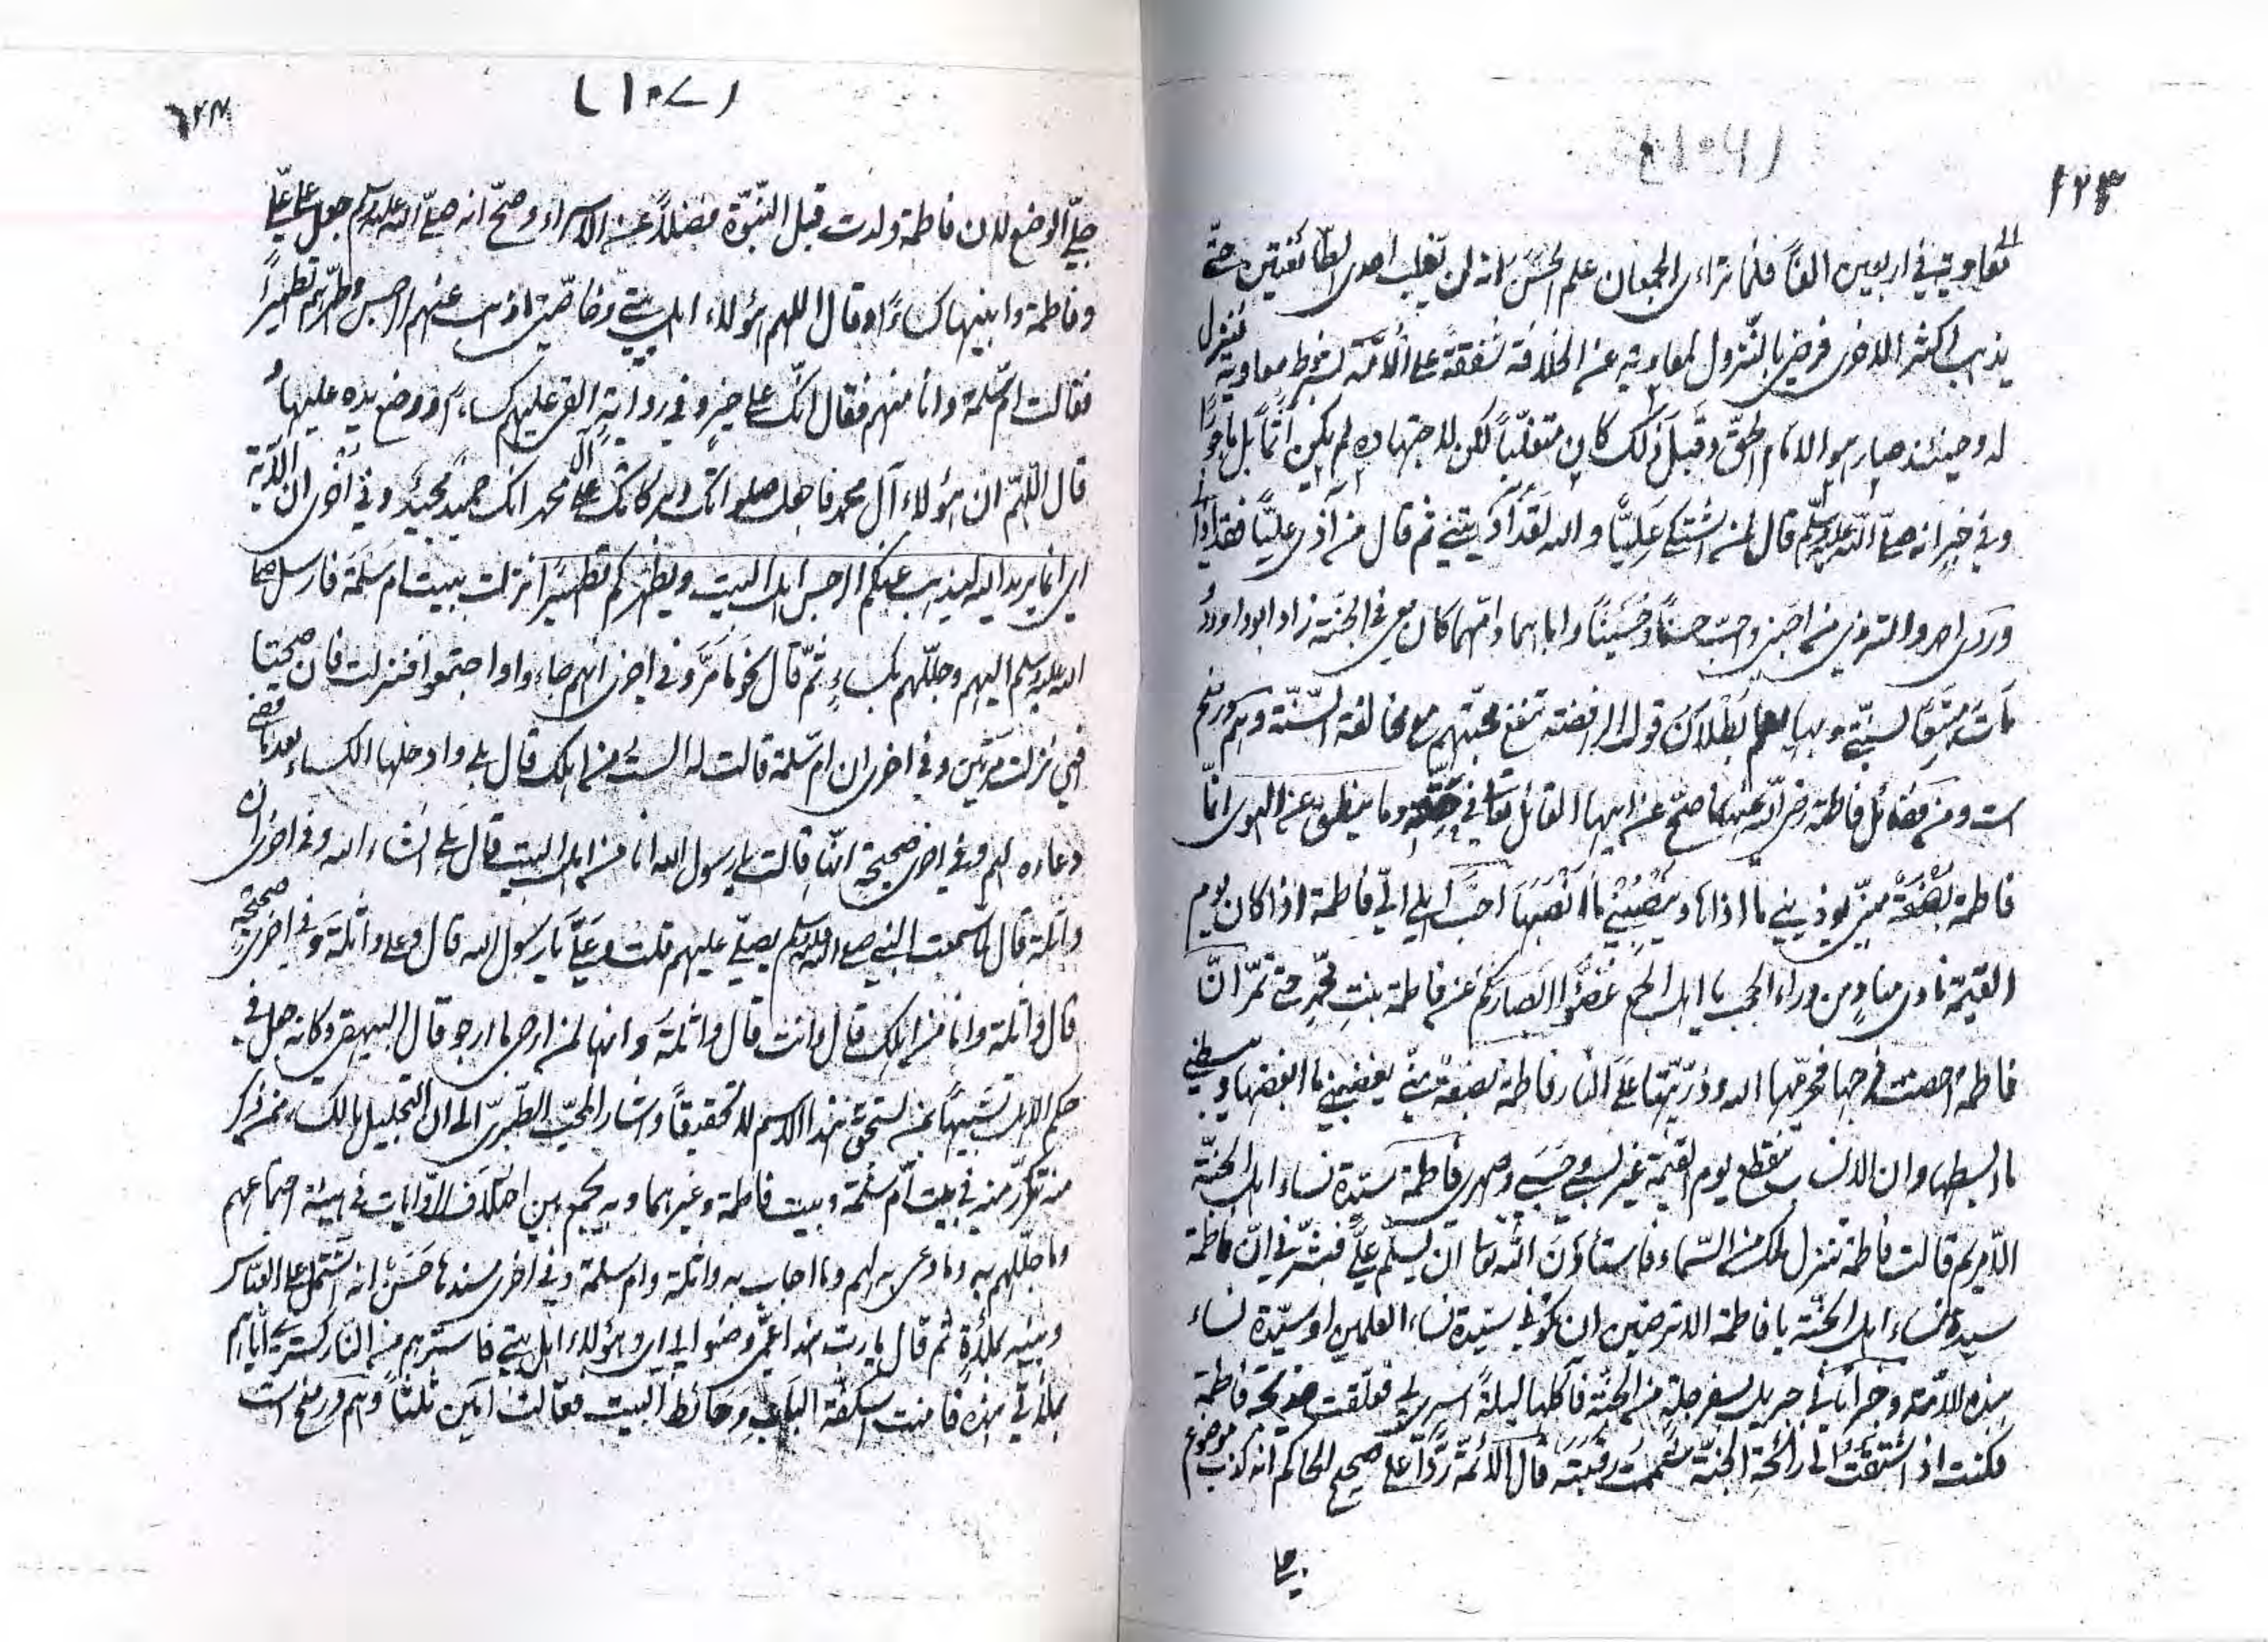 ١٢٣
(١٠٦)
لمعاوية في اربعين الفاً فلما تراءى الجمعان علم الحسن انه لن يغلب احدى الطائفتين حتى
يذهب اكثر الاخرى فرضي بالنزول لمعاوية عن الخلافة شفقة على الامة بشرط معاوية فنزل
له وحينئذ صار هو الامام الحق وقبل ذلك كان متغلباً لكن لاجتهاده لم يكن آثماً بل ماجوراً
وفي خبر انه صلى الله عليه وسلم قال لمن اشتكى علياً والله لقد آذيتني ثم قال من آذى علياً فقد آذاني
وروى احمد والترمذي من احبني واحب حسناً وحسيناً واباهما وامهما كان معي في الجنة زاد ابو داود
مات متبعاً لسنتي وبها يعلم بطلان قول الرافضة تنفع محبتهم مع مخالفة السنة وهم در منح
است ومن فضائل فاطمة رضي الله عنها ما صح عن ابيها القائل تعالى في حقه وما ينطق عن الهوى انما
فاطمة بضعة مني يوذيني ما اذاها وينصبني ما انصبها احب اهلي الي فاطمة اذا كان يوم
القيمة نادى مناد من وراء الحجب يا اهل الجمع غضوا ابصاركم عن فاطمة بنت محمد حتى تمر ان
فاطمة احصنت فرجها فحرمها الله وذريتها على النار فاطمة بضعة مني يغضبني ما اغضبها ويبسطني
ما يبسطها وان الانساب تنقطع يوم القيمة غير نسبي وحسبي وصهري فاطمة سيدة نساء اهل الجنة
الا مريم قالت فاطمة تنزل ملك من السماء فاستأذن الله تعالى ان يسلم علي فبشرني ان فاطمة
سيدة نساء اهل الجنة يا فاطمة الا ترضين ان تكوني سيدة نساء العلمين او سيدة نساء
هذه الامة وخبر اتاني جبريل بسفرجلة من الجنة فآكلها ليلة اسري بي فعلقت خديجة فاطمة
فكنت اذا اشتقت الى رائحة الجنة شممت رقبته قال الائمة رداً على صحيح الحاكم انه كذب موضوع
جلي
١٢٤
(١٠٧)
جلي الوضع لان فاطمة ولدت قبل النبوة فضلاً عن الاسراء وصح انه صلى الله عليه وسلم جعل على علي
وفاطمة وابنيها كساءً وقال اللهم هؤلاء اهل بيتي وخاصتي اذهب عنهم الرجس وطهرهم تطهيراً
فقالت ام سلمة وانا منهم فقال انك على خير وفي رواية القى عليهم كساءً ووضع يده عليها
قال اللهم ان هؤلاء آل محمد فاجعل صلواتك وبركاتك على آل محمد انك حميد مجيد وفي اخرى ان الآية
اي انما يريد الله ليذهب عنكم الرجس اهل البيت ويطهركم تطهيراً نزلت ببيت ام سلمة فارسل صلى
الله عليه وسلم اليهم وجللهم بكساء ثم قال نحو ما مر وفي اخرى انهم جاءوا واجتمعوا فنزلت فان صحتا
فهي نزلت مرتين وفي اخرى ان ام سلمة قالت له الست من اهلك قال بلى وادخلها الكساء بعد ما قضى
دعاءه لهم وفي اخرى صحيحة انها قالت يا رسول الله انا من اهل البيت قال بلى انشاء الله وفي اخرى ان
واثلة قال لما سمعت النبي صلى الله عليه وسلم يصلي عليهم قلت وعلي يا رسول الله قال وعلى واثلة وفي اخرى صحيحة
قال واثلة وانا من اهلك قال وانت قال واثلة وانها لمن ارجى ما ارجو قال البيهقي وكانه جعل في
حكم الاهل تشبيهاً بمن يستحق هذا الاسم لا تحقيقاً واشار المحب الطبري الى ان التجليل بالكساء من ذكر
منه تكرر منه في بيت ام سلمة وبيت فاطمة وغيرهما وبه يجمع بين اختلاف الروايات في هيئة اجتماعهم
وما جللهم به وما دعى به لهم وما اجاب به واثلة وام سلمة وفي اخرى سندها حسن انه اشتمل على العباس
وبنيه بملاءة ثم قال يا رب هذا عمي وصنو ابي وهؤلاء اهل بيتي فاسترهم من النار كستري اياهم
بملاءتي هذه فامنت اسكفة الباب وحائط البيت فقالت آمين ثلثاً وهم در منح است